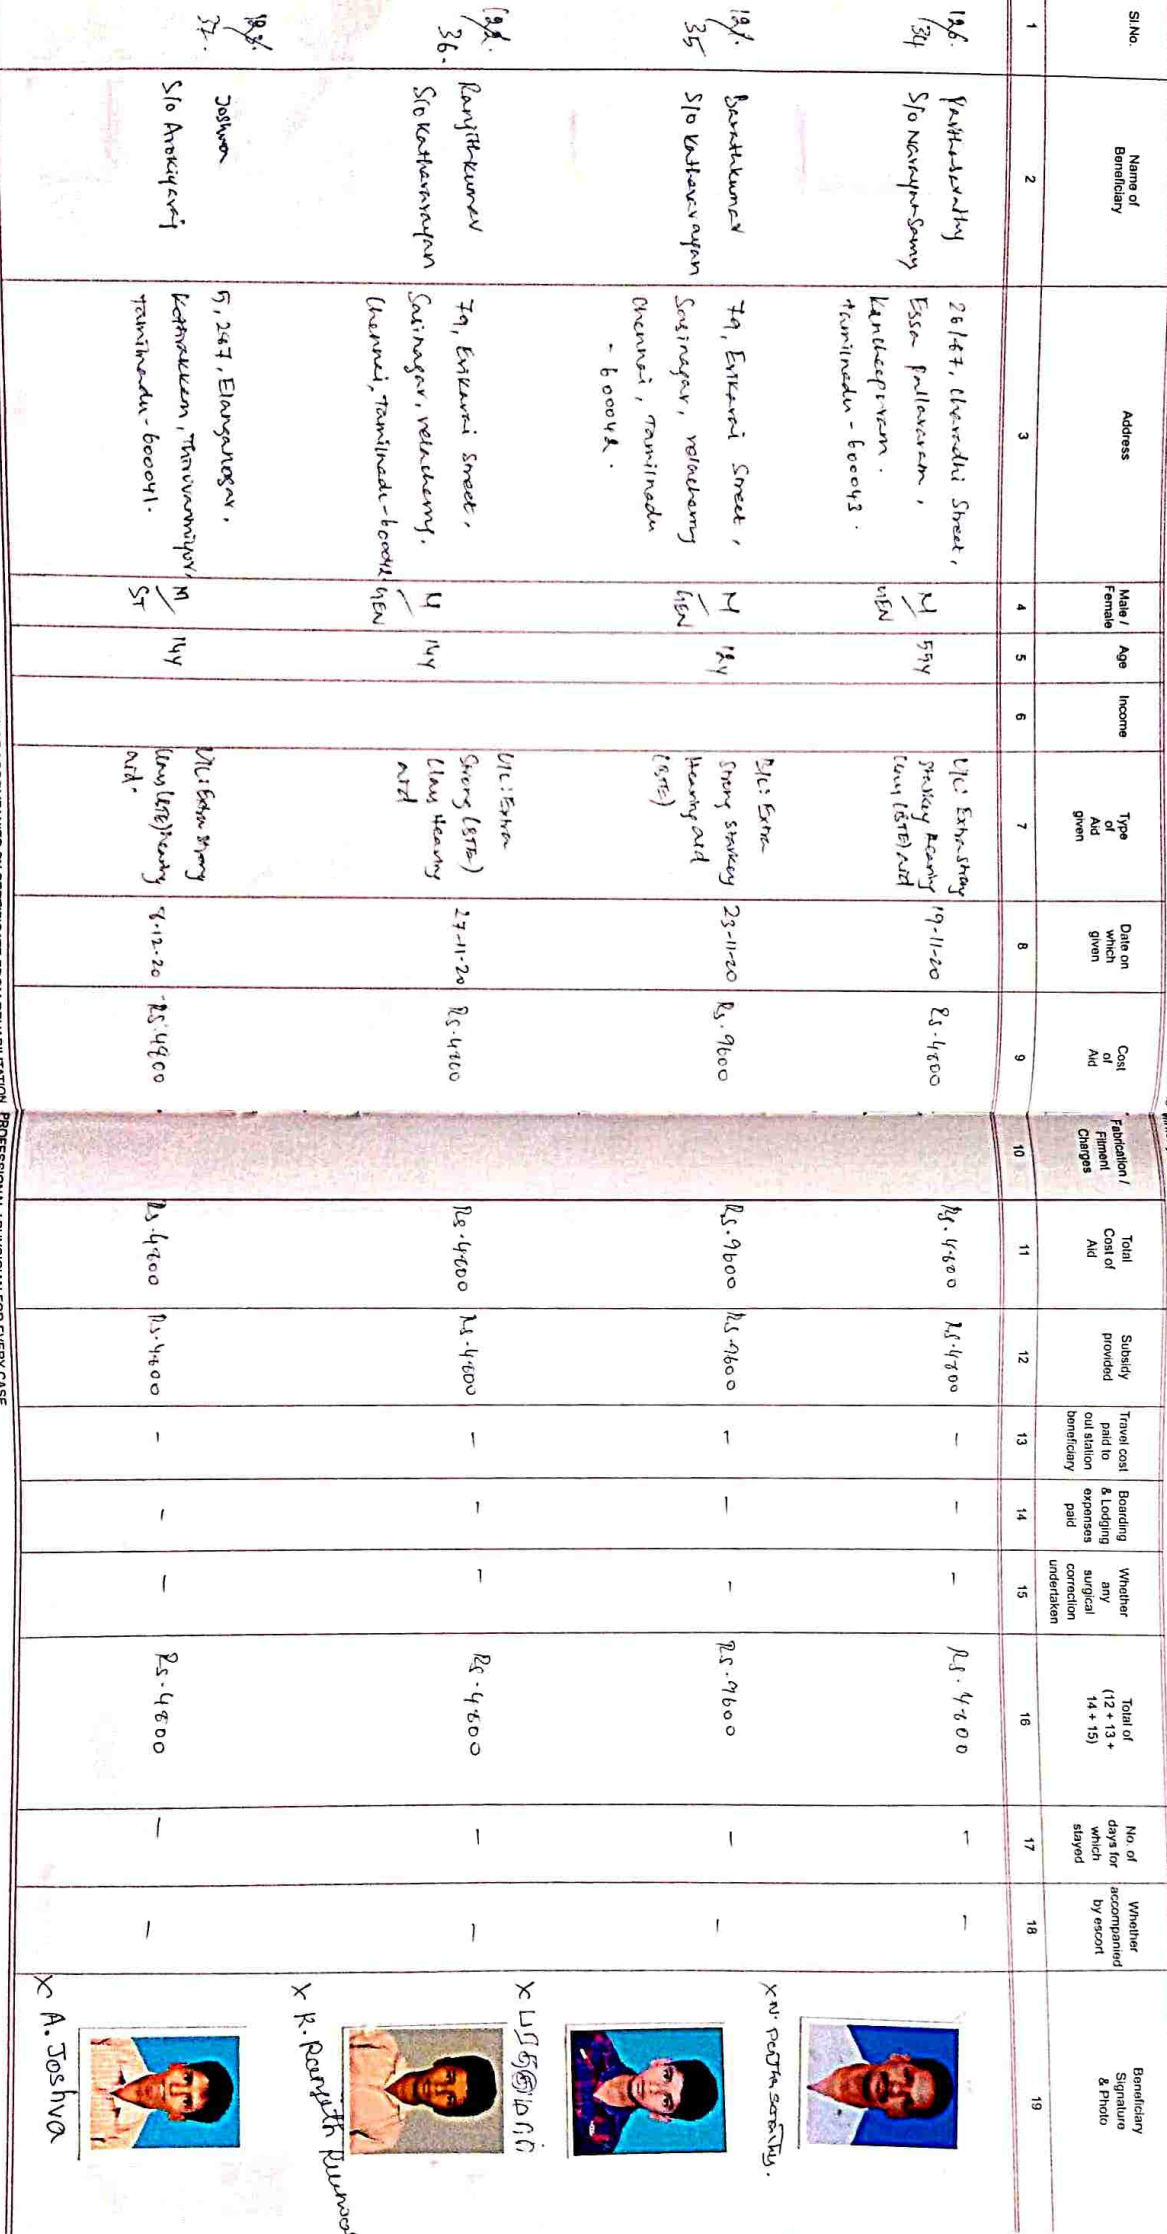 Sl.No.
Name of
Beneficiary
Address
Male /
Female
Age
Income
Type
of
Aid
given
Date on
which
given
Cost
of
Aid
Fabrication /
Fitment
Charges
Total
Cost of
Aid
Subsidy
provided
Travel cost
paid to
out station
beneficiary
Boarding
& Lodging
expenses
paid
Whether
any
surgical
correction
undertaken
Total of
(12 + 13 +
14 + 15)
No. of
days for
which
stayed
Whether
accompanied
by escort
Beneficiary
Signature
& Photo
1 2 3 4 5 6 7 8 9 10 11 12 13 14 15 16 17 18 19
126.
34
Parthasarathy
S/o Narayanasamy
26/67, Street,
Essa Pallavaram,
Kancheepuram.
Tamilnadu - 600043.
M
/
GEN
U/L: Extra strong
Starkey Hearing
(BTE) aid
19-11-20
Rs. 4800
Rs. 4800
Rs. 4800
-
-
-
Rs. 4800
-
-
X N. Parthasarathy.
35
Barathkumar
S/o Katharavarayan
79, Erikarai Street,
Sasinagar, velachery
Chennai, Tamilnadu
- 600042.
M
/
GEN
12y
B/L: Extra
Strong Starkey
Hearing aid
(BTE)
23-11-20
Rs. 9600
Rs. 9600
Rs. 9600
-
-
-
Rs. 9600
-
-
X பரத்குமார்
36.
Ranjithkumar
S/o Katharavarayan
79, Erikarai Street,
Sasinagar, velachery,
Chennai, Tamilnadu - 600042.
M
/
GEN
14y
U/L: Extra
Strong (BTE)
Hearing
aid
27-11-20
Rs. 4800
Rs. 4800
Rs. 4800
-
-
-
Rs. 4800
-
-
X R. Ranjeth
37.
Joshva
S/o Arokiyaraj
5, 247, Elanganagar,
Kottivakkam, Thiruvanmiyur,
Tamilnadu - 600041.
M
/
ST
14y
U/L: Extra strong
(BTE) Hearing
aid.
8-12-20
Rs. 4800
Rs. 4800
Rs. 4800
-
-
-
Rs. 4800
-
-
X A. Joshva